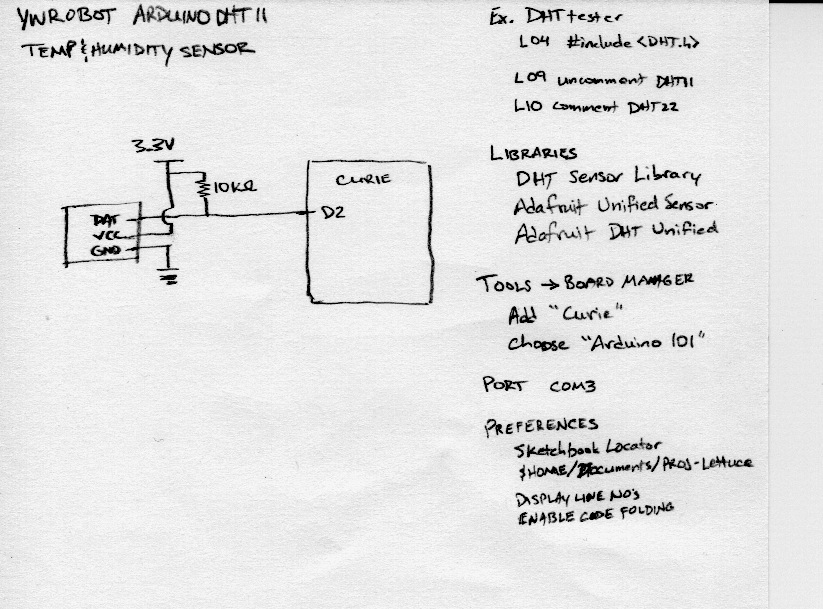 YWROBOT ARDUINO DHT11
TEMP & HUMIDITY SENSOR
3.3V
10KΩ
CURIE
D2
DAT
VCC
GND
Ex. DHTtester
L04 #include <DHT.h>
L09 uncomment DHT11
L10 comment DHT22
LIBRARIES
DHT Sensor Library
Adafruit Unified Sensor
Adafruit DHT Unified
TOOLS → BOARD MANAGER
Add "Curie"
Choose "Arduino 101"
PORT COM3
PREFERENCES
Sketchbook Locator
$HOME/Documents/PROJ-Lettuce
DISPLAY LINE NO's
ENABLE CODE FOLDING